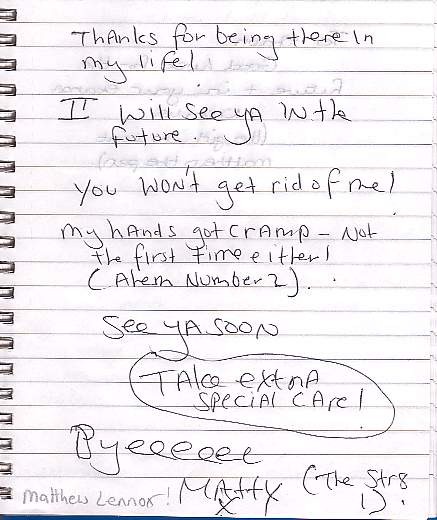 Thanks for being there in
my life!
I will see ya in the
future.
You won't get rid of me!
My hands got cramp - Not
the first time either!
(Ahem Number 2).
See ya soon
Take extra
special care!
Byeeeeee
Matty (The Str8
1)
x
Matthew Lennox!